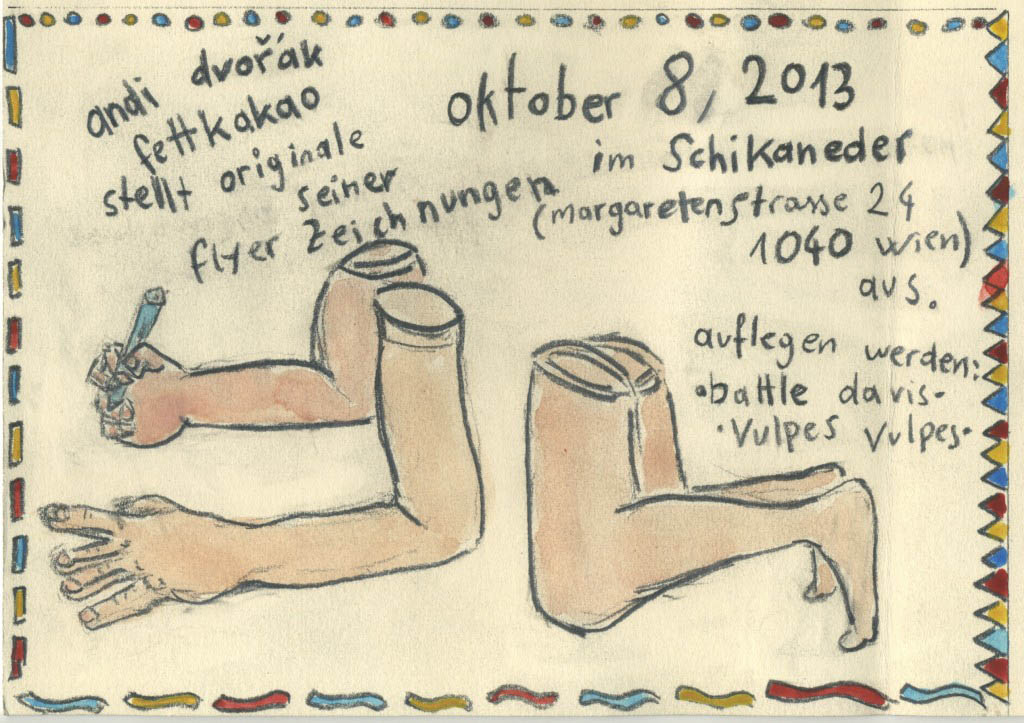 andi dvořák
fettkakao
stellt originale
seiner
flyer zeichnungen
oktober 8, 2013
im Schikaneder
(margaretenstrasse 24
1040 wien)
aus.
auflegen werden:
•battle davis•
•Vulpes Vulpes•